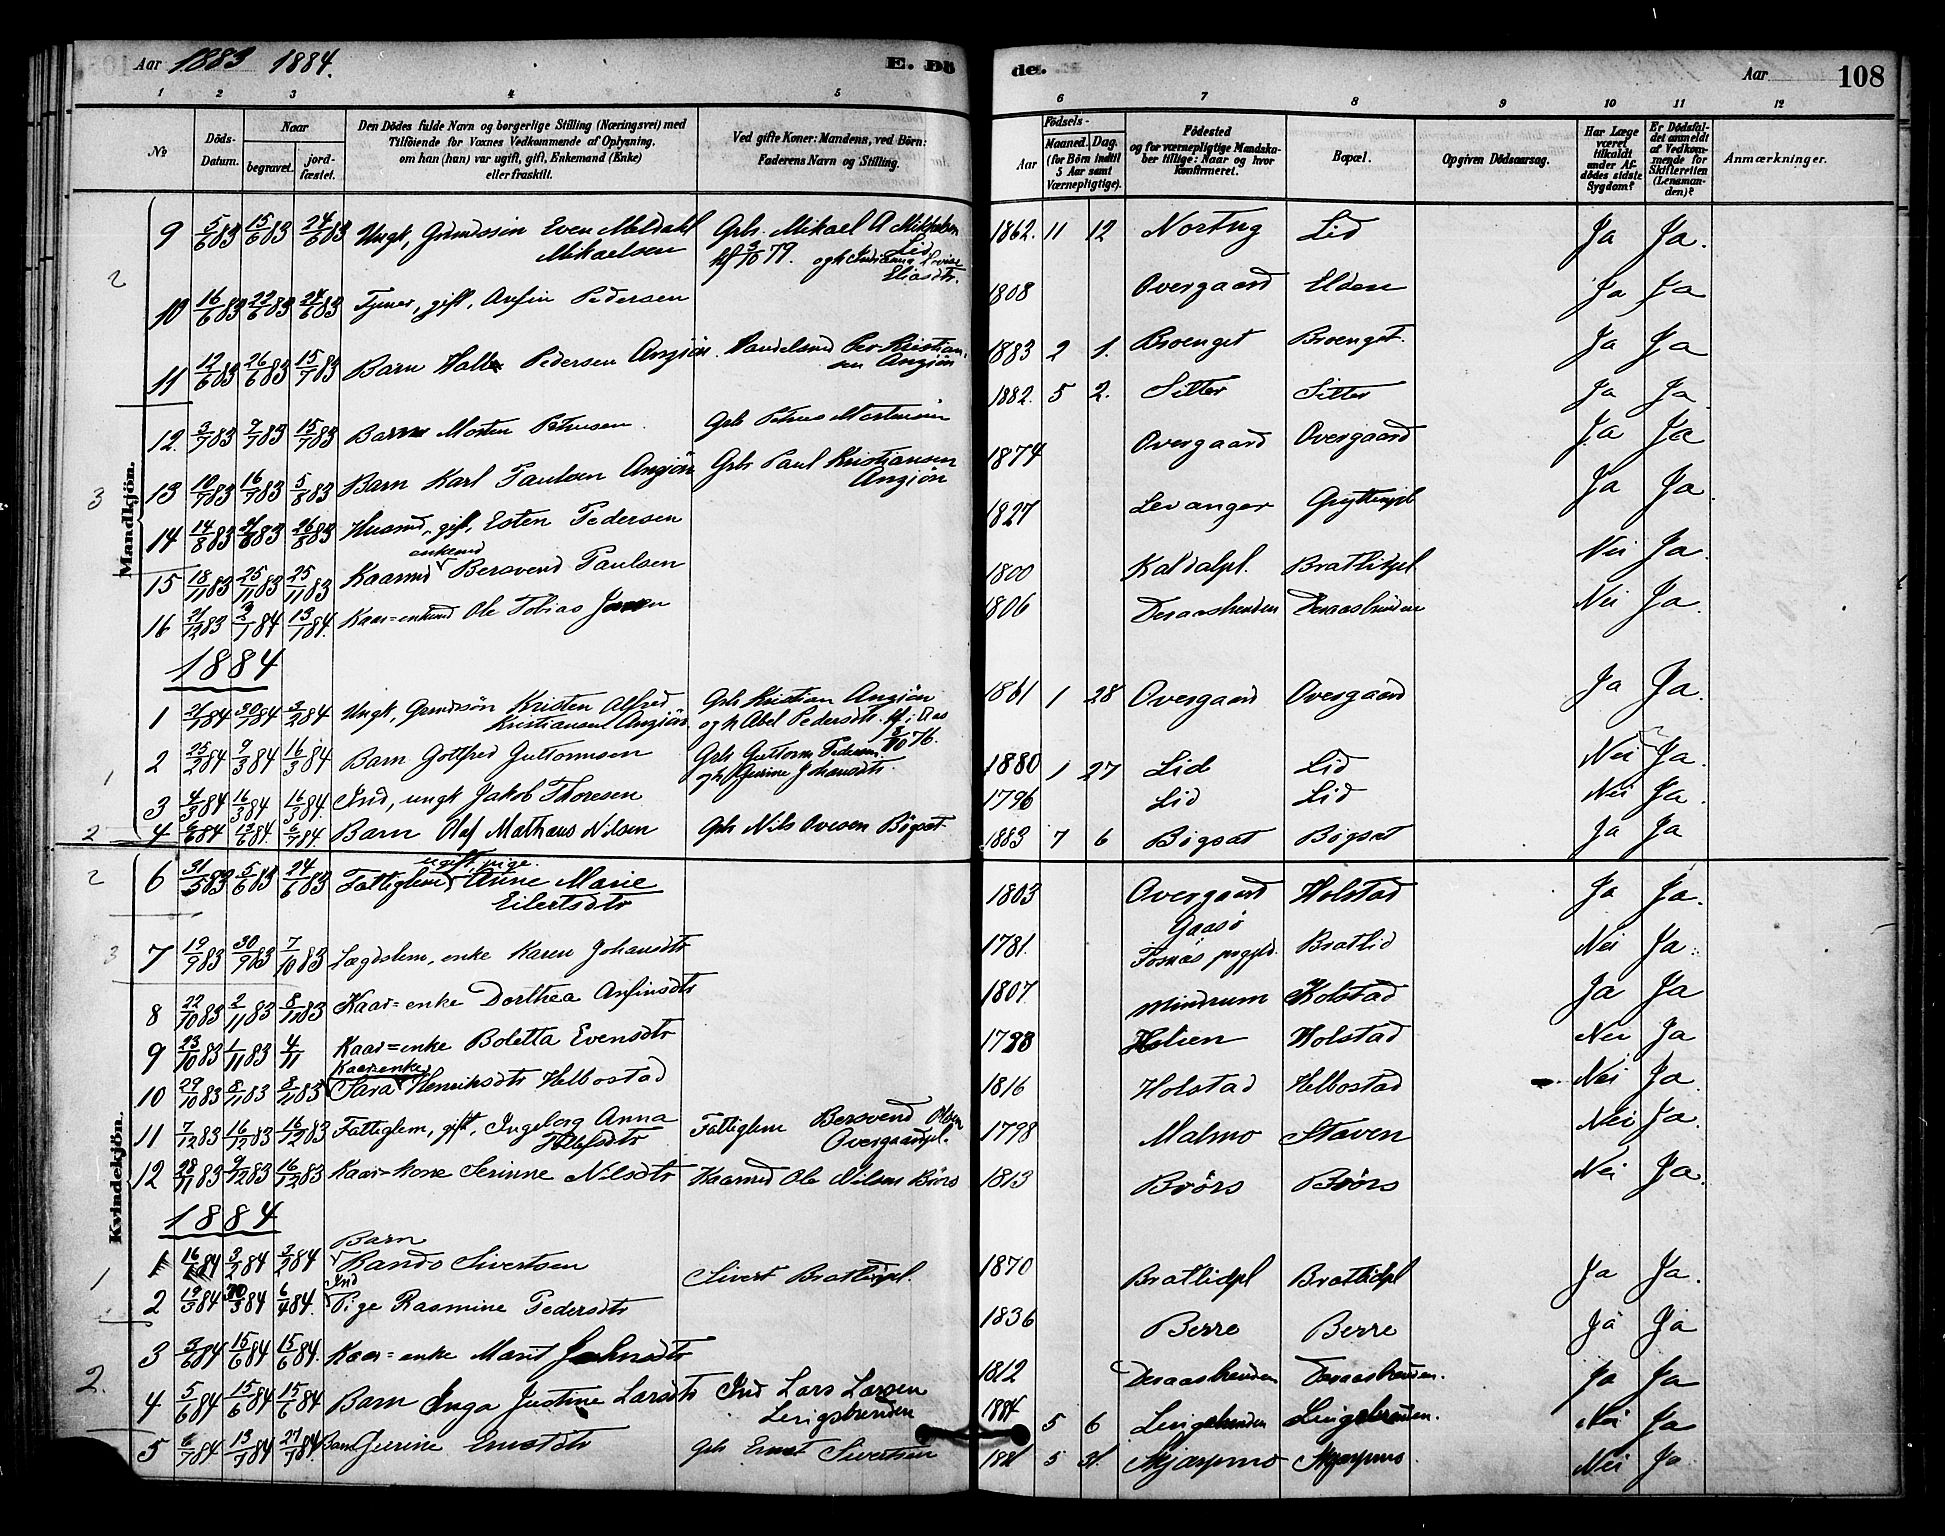 Aar 1883 1884. E. Dö de. Aar 108
1 2 3 4 5 6 7 8 9 10 11 12
№ Döds-Datum. Naar begravet. jord-fæstet. Den Dödes fulde Navn og borgerlige Stilling (Næringsvei) med Tilföiende for Voxnes Vedkommende af Oplysning, om han (hun) var ugift, gift, Enkemand (Enke) eller fraskilt. Ved gifte Koner: Mandens, ved Börn: Faderens Navn og Stilling. Födsels- Aar Maaned. Dag. (for Börn indtil 5 Aar samt Værnepligtige). Födested og for værnepligtige Mandskaber tillige: Naar og hvor konfirmeret. Bopæl. Opgiven Dödsaarsag. Har Læge været tilkaldt under Afdödes sidste Sygdom? Er Dödsfaldet anmeldt af Vedkommende for Skifteretten (Lensmanden)? Anmærkninger.
Mandkjön.
9 5/6 83 15/6 83 24/6 83 Ungk, Grundssön Even Meldahl Mikaelsen Grbr. Mikael A Mikkelsen Lid 1862. 11 12 Nortug Lid Ja Ja.
10 16/6 83 22/6 83 24/6 83 Tjener, gift, Anfin Pedersen 1808 Overgaard Elden Ja Ja
11 12/6 83 26/6 83 15/7 83 Barn Pedersen Angjön. Handelsmd Per Kristiansen Angjön 1883 2 1. Broenget Broenget. Ja Ja
12. 3/7 83 9/7 83 15/7 83 Barn Morten Petersen. Grb Petrus Mortensen 1882. 5 2. Sitter Sitter Ja Ja.
13 10/7 83 16/7 83 5/8 83 Barn Karl Paulsen Angjön Grbr Paul Kristiansen Angjön 1874 Overgaard Overgaard Ja Ja
14 14/8 83 21/8 83 26/8 83 Husmd, gift, Esten Pedersen 1827 Levanger Ja Ja.
15 18/11 83 25/11 83 25/11 83 Kaarmd enkemd Bersvend Paulsen 1800 Kaldalpl. Bratlidpl. Nei Ja.
16 21/12 83 2/1 84 13/1 84. Kaar-enkemd Ole Tobias Jensen 1806 Nei Ja.
1884
1 21/1 84 30/1 84 3/2 84 Ungk, Grundssön Kristen Alfred Kristiansen Angjön. Grb Kristian Angjön og h Abel Pedersdtr. 1861 1 28 Overgaard Overgaard Ja Ja.
2 25/2 84 9/3 84 16/3 84 Barn Gotfred Guttormsen Grb Guttorm Pedersen og h Gurine Johansdtr. 1880 1 27 Lid Lid Nei Ja.
3 4/3 84 16/3 84 16/3 84. Ind, ungk Jakob Thoresen 1796 Lid Lid Nei Ja.
4 6/84 13/84. 6/84. Barn Olaf Matheus Nilsen Grb Nils Ovesen Bögset 1883 7 6 Bögset Bögset Ja Ja
Kvindekjön.
6 31/5 83 5/6 83 24/6 83 Fattiglem ugift pige. Anne Marie Eilertsdtr 1803 Overgaard Holstad Ja Ja.
7 19/9 83 30/9 83 7/10 83 Lægdslem, enke Karen Johansdtr 1781. Gaasö Fosnæs prgjld. Bratlid Nei Ja.
8 22/10 83 2/11 83 8/11 83 Kaar=enke Dorthea Anfinsdtr 1807 Mindrum Holstad Ja Ja
9 23/10 83 1/11 83 4/11 Kaar=enke Boletta Evensdtr Holien Holstad Nei Ja
10 29/10 83 8/11 83 8/11 83 Kaarenke Sara Henriksdtr Helbostad 1816 Holstad Helbostad Nei Ja
11 7/12 83 16/12 83 16/12 83 Fattiglem, gift, Ingeborg Anna Olufsdtr Fattiglem Bersvend Olsen Overgaardpl. 1798 Malmo Staven Nei Ja.
12 28/11 83 9/12 83 16/12 83 Kaar-kone Serinne Nilsdtr Kaarmd Ole Nilsen Börs 1813 Börs Börs Nei Ja.
1884
1 16/1 84 3/2 84 3/2 84 Barn Rands Sivertsen Sivert Bratlidpl. 1870 Bratlidpl Bratlidpl Ja Ja.
2 19/3 84 30/3 84 6/4 84. Ind Pige Rasmine Pedersdtr 1836 Berre Berre Ja Ja
3 3/6 84 15/6 84 15/6 84. Kaar=enke Marit Johnsdtr 1812 Ja Ja
4 5/6 84 15/6 84 15/6 84 Barn Inga Justine Larsdtr Ind Lars Larsen 1884 5 6 Nei Ja
5 6/7 84 13/7 84 27/7 84 Barn Gurine Ernstdtr Grb Ernst Sivertsen 5 Skjærpmo Skjærpmo. Nei Ja